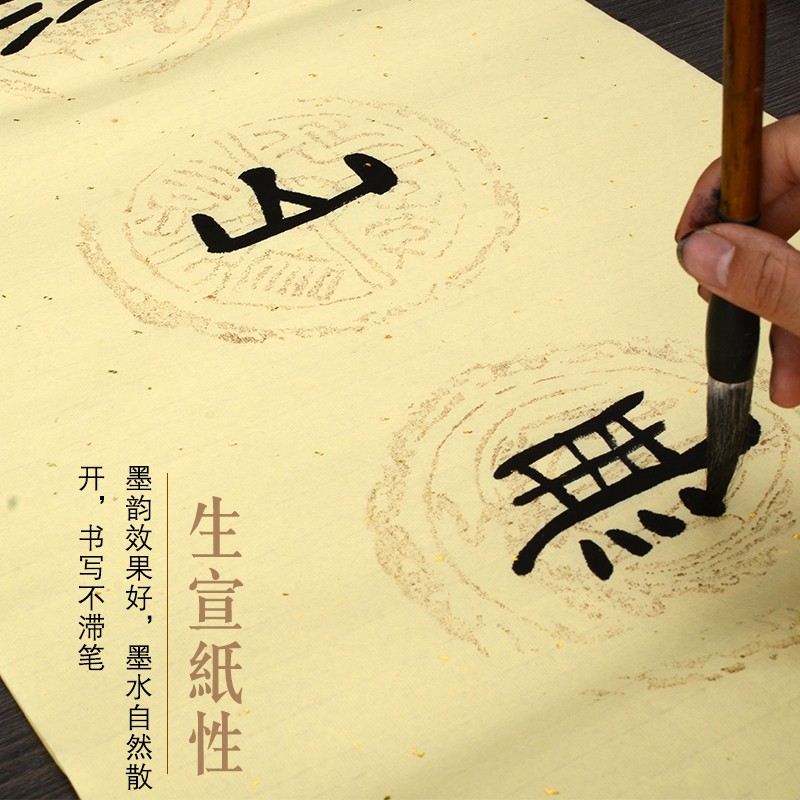 山
無
生宣紙性
墨韵效果好，墨水自然散
开，书写不滞笔